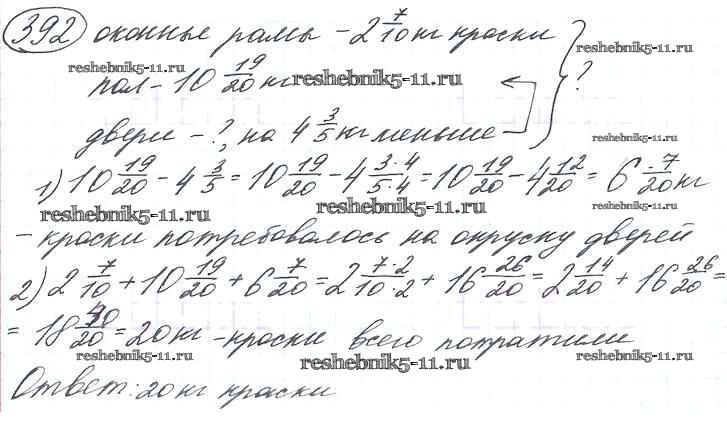 392 оконные рамы - 2 7/10 кг краски
reshebnik5-11.ru reshebnik5-11.ru
пол - 10 19/20 кг reshebnik5-11.ru ?
двери - ?, на 4 3/5 кг меньше reshebnik5-11.ru
1) 10 19/20 - 4 3/5 = 10 19/20 - 4 3·4/5·4 = 10 19/20 - 4 12/20 = 6 7/20 кг
reshebnik5-11.ru reshebnik5-11.ru reshebnik5-11.ru
- краски потребовалось на окруску дверей
2) 2 7/10 + 10 19/20 + 6 7/20 = 2 7·2/10·2 + 16 26/20 = 2 14/20 + 16 26/20 =
reshebnik5-11.ru
= 18 40/20 = 20 кг - краски всего потратили
reshebnik5-11.ru reshebnik5-11.ru reshebnik5-11.ru
Ответ: 20 кг краски